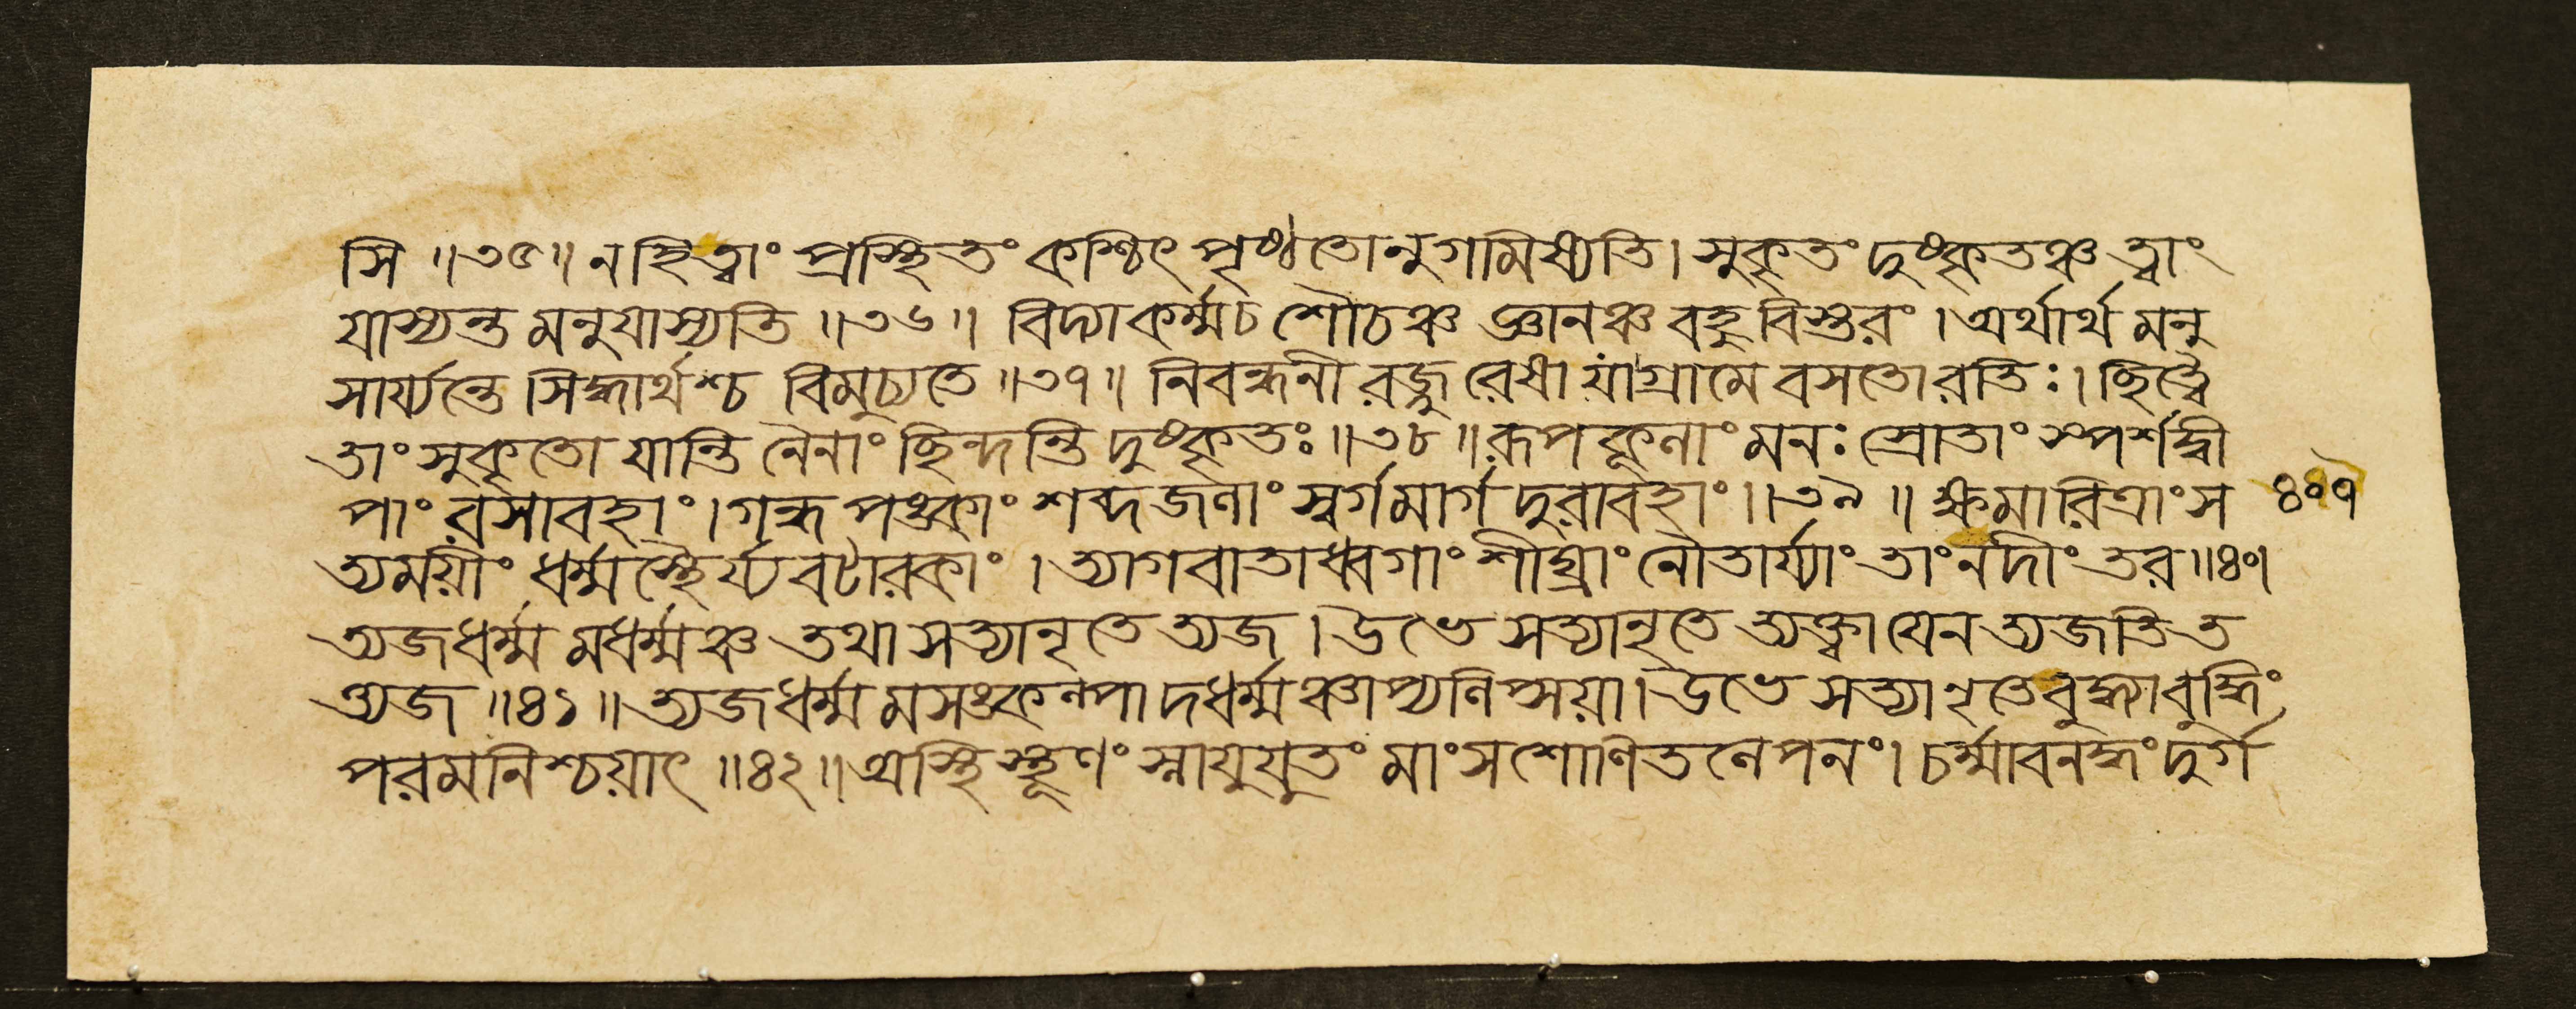 সি ॥৩৫॥ ন হি ত্বাং প্রস্থিতং কশ্চিৎ পৃষ্ঠতোনুগমিষ্যতি। সুকৃতং দুষ্কৃতঞ্চ ত্বাং
যাস্যন্ত মনুযাস্যতি ॥৩৬॥ বিদ্যা কর্ম্মচ শৌচঞ্চ জ্ঞানঞ্চ বহু বিস্তরং। অর্থার্থ মনু
সার্য্যন্তে সিদ্ধার্থশ্চ বিমুচ্যতে ॥৩৭॥ নিবন্ধনী রজ্জু রেষা যা গ্রামে বসতো রতিঃ। ছিত্ত্বৈ
তাং সুকৃতো যান্তি নৈনাং ছিন্দন্তি দুষ্কৃতঃ ॥৩৮॥ রূপকূলাং মনঃ স্রোতাং স্পর্শদ্বী
পাং রসাবহাং। গন্ধপঙ্কাং শব্দজলাং স্বর্গমার্গদুরাবহাং ॥৩৯॥ ক্ষমারিত্রাং স
ত্যময়ীং ধর্ম্মস্থৈর্য্যবটারকাং। ত্যাগবাতাধ্বগাং শীঘ্রাং নৌতার্য্যাং তাং নদীং তর ॥৪০।
ত্যজ ধর্ম্ম মধর্ম্মঞ্চ তথা সত্যানৃতে ত্যজ। উভে সত্যানৃতে ত্যক্ত্বা যেন ত্যজতি ত
ত্ত্যজ ॥৪১॥ ত্যজ ধর্ম্ম মসঙ্কল্পাদধর্ম্মঞ্চাপ্যলিপ্সয়া। উভে সত্যানৃতে বুদ্ধ্যা বুদ্ধিং
পরমনিশ্চয়াৎ ॥৪২॥ অস্থিস্থূণং স্নায়ুযুতং মাংসশোণিতলেপনং। চর্ম্মাবনদ্ধং দুর্গ
৪০৭